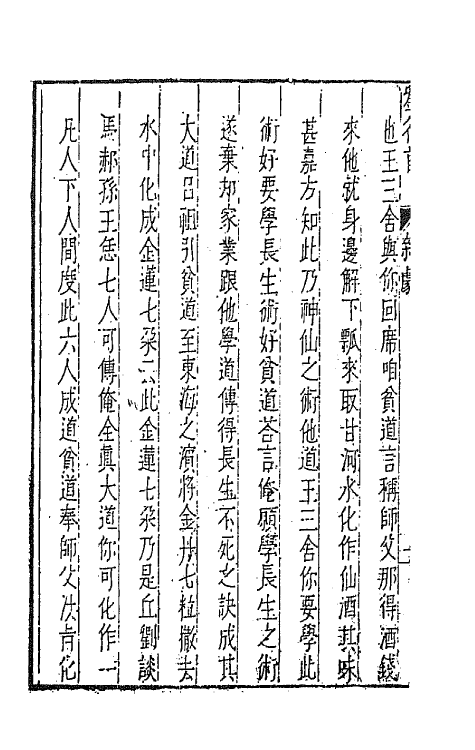 劉行首 雜劇
也王三舍與你回席咱貧道言稱師父那得酒錢
來他就身邊解下瓢來取甘河水化作仙酒其味
甚嘉方知此乃神仙之術他道王三舍你要學此
術好要學長生術好貧道荅言俺願學長生之術
遂棄却家業跟他學道傳得長生不死之訣成其
大道呂祖引貧道至東海之濱將金丹七粒撒去
水中化成金蓮七朶云此金蓮七朶乃是丘劉談
馬郝孫王恁七人可傳俺全真大道你可化作一
凡人下人間度此六人成道貧道奉師父法旨化